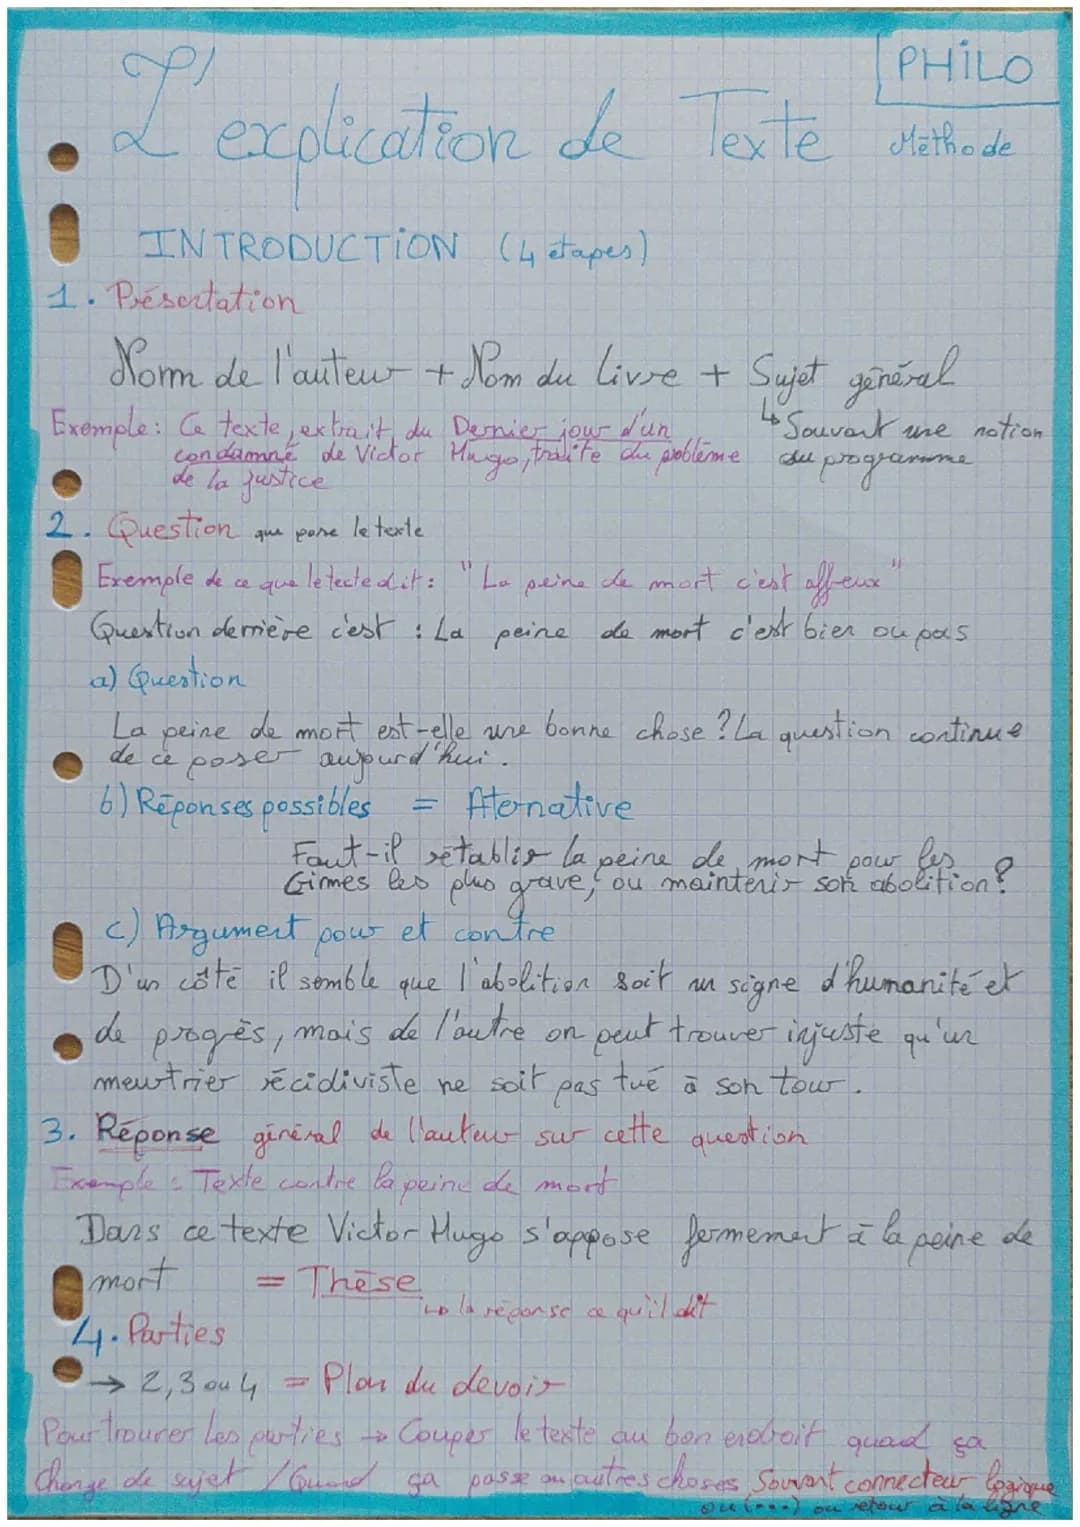 PHiLO
L'explication de Texte
Méthode
INTRODUCTiON (4 étapes)
1. Présentation
Nom de l'auteur + Nom du Livre + Sujet général
↳ Souvent une notion du programme
Exemple: Ce texte, extrait du Dernier jour d'un
condamné de Victor Hugo, traite du problème
de la justice
2. Question que pose le texte
Exemple de ce que le texte dit : "La peine de mort c'est affreux"
Question derrière c'est : La peine de mort c'est bien ou pas
a) Question
La peine de mort est-elle une bonne chose ? La question continue
de ce poser aujourd'hui.
b) Réponses possibles = Aternative
Faut-il rétablir la peine de mort pour les
Crimes les plus grave, ou maintenir son abolition ?
c) Argument pour et contre
D'un côté il semble que l'abolition soit un signe d'humanité et
de progrès, mais de l'autre on peut trouver injuste qu'un
meurtrier récidiviste ne soit pas tué à son tour.
3. Réponse général de l'auteur sur cette question
Exemple : Texte contre la peine de mort
Dans ce texte Victor Hugo s'appose fermement à la peine de
mort = Thèse
↳ la réponse ce qu'il dit
4. Parties
→ 2, 3 ou 4 = Plan du devoir
Pour trouver les parties → Couper le texte au bon endroit quand ça
change de sujet / Quand ça passe au autres choses, Souvent connecteur logique
ou (...) ou retour à la ligne